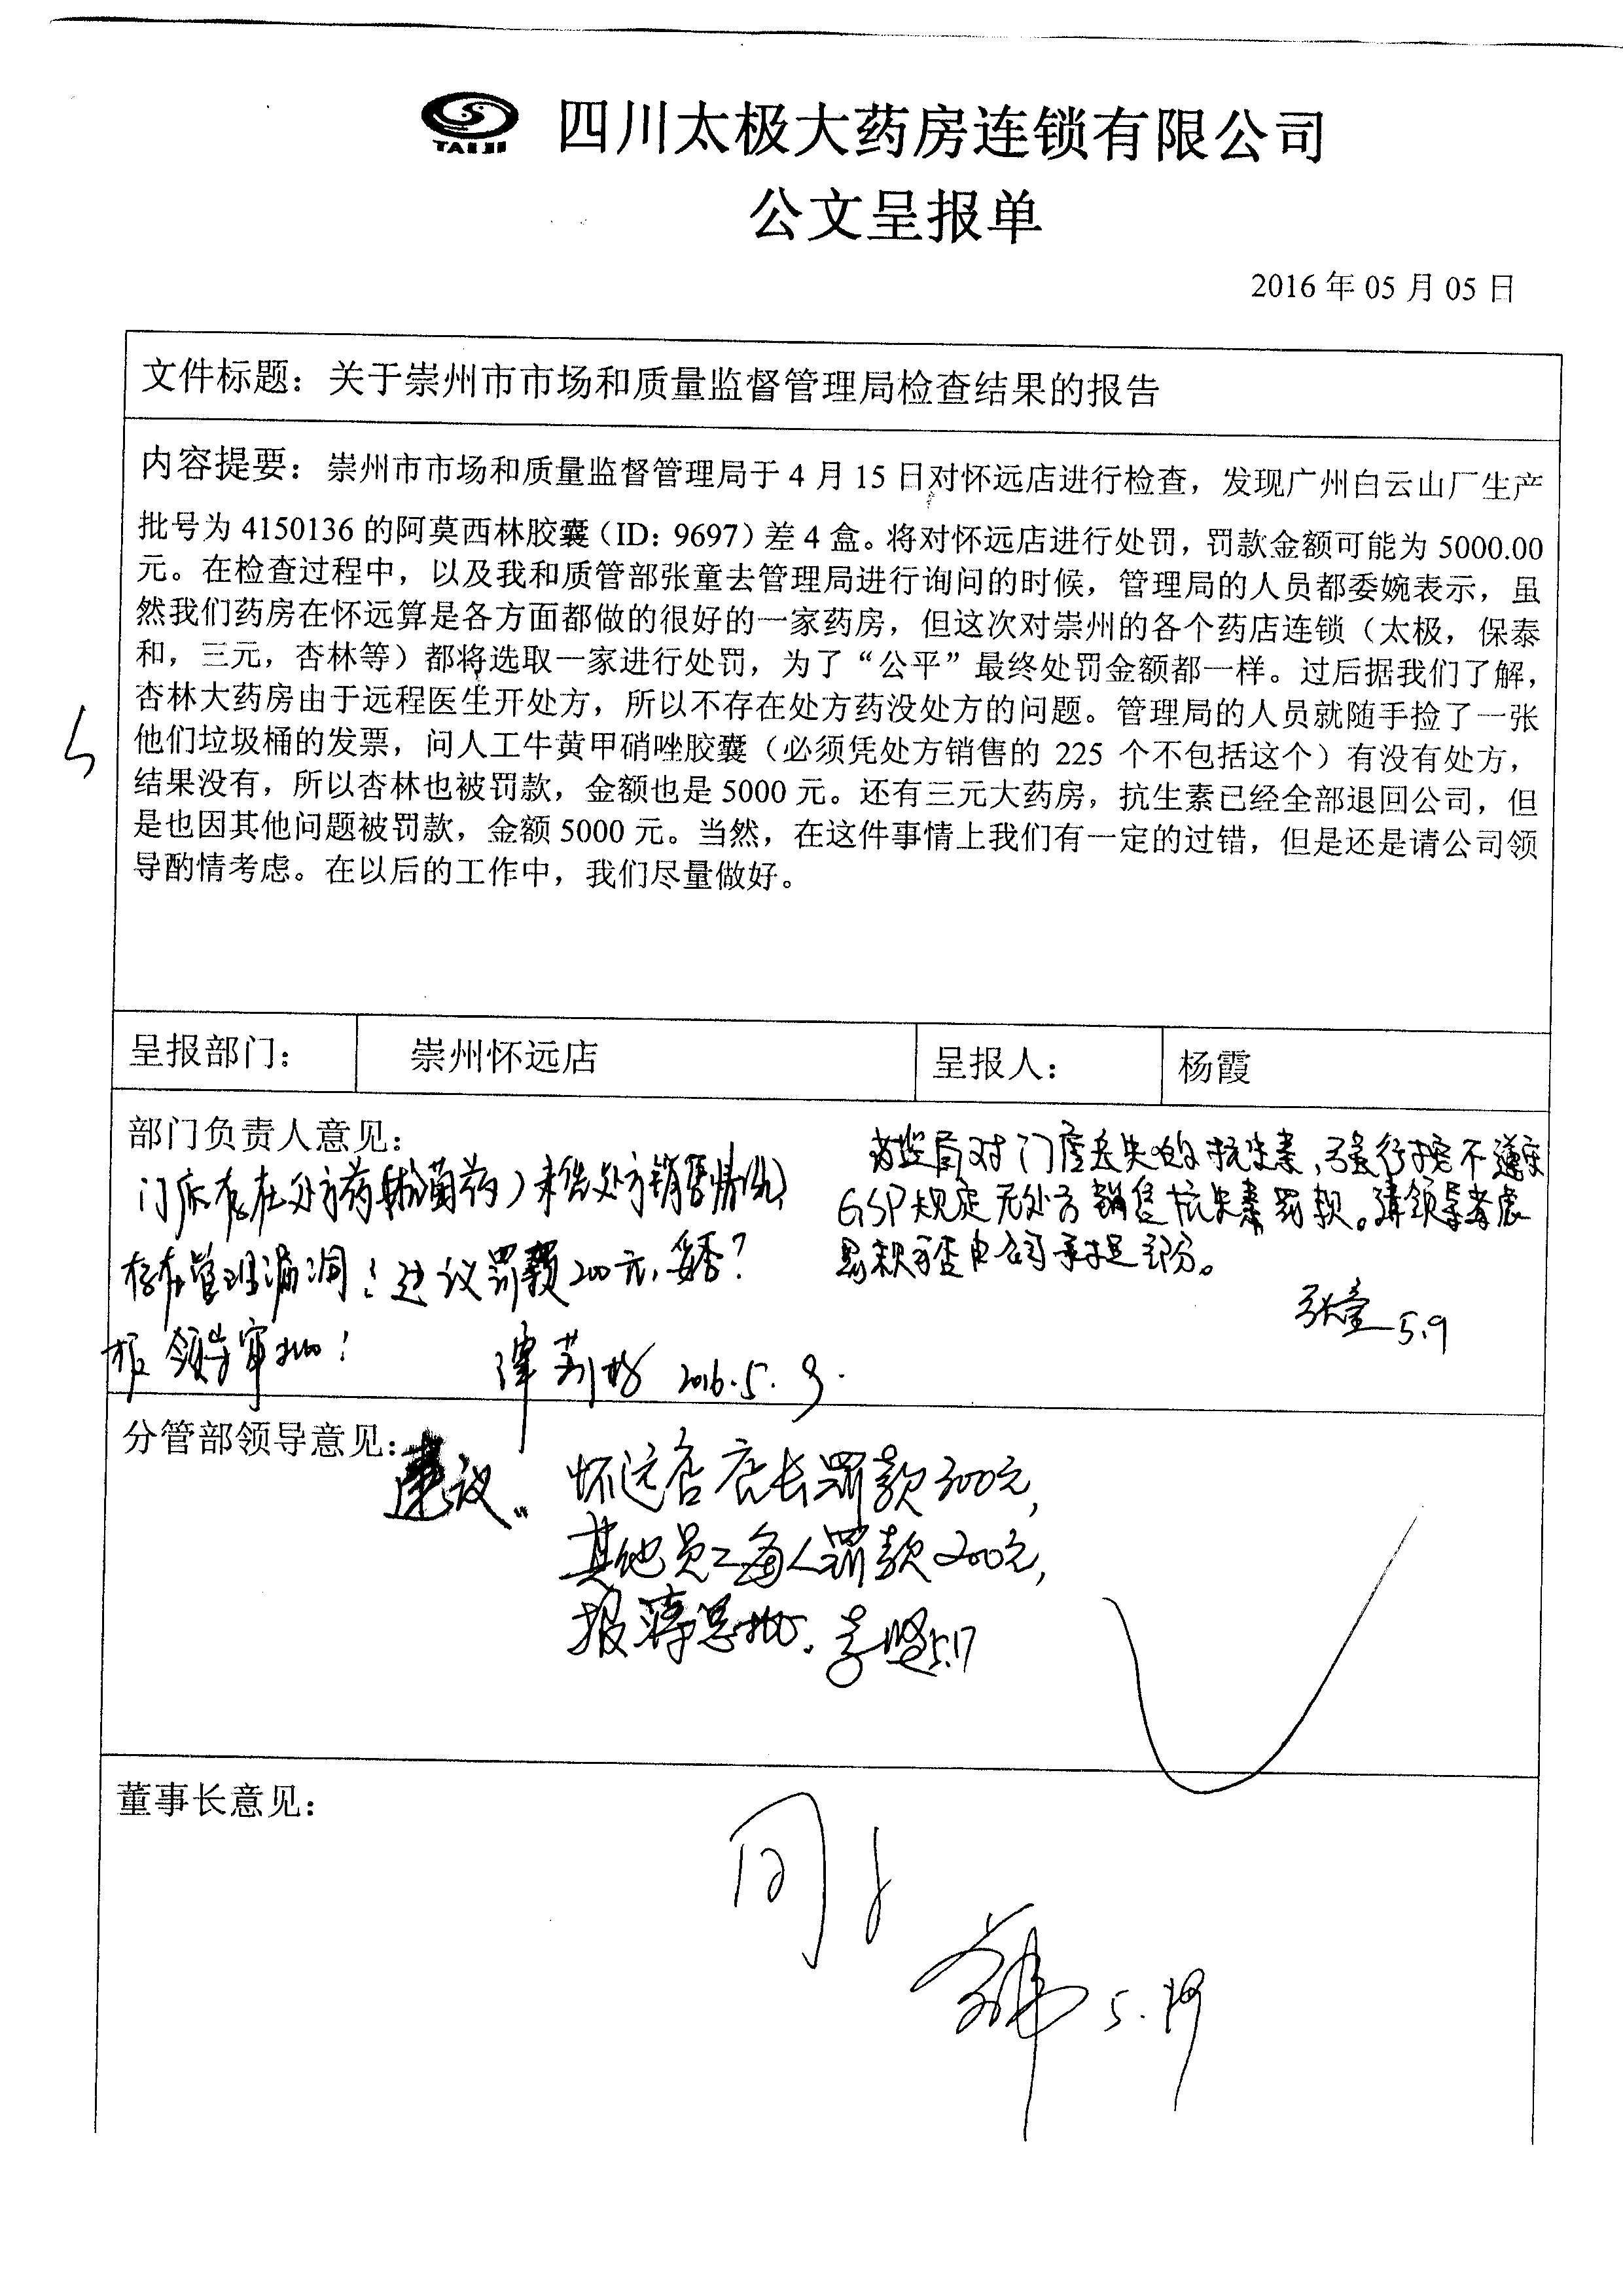 TAIJI 四川太极大药房连锁有限公司
公文呈报单
2016 年 05 月 05 日
文件标题：关于崇州市市场和质量监督管理局检查结果的报告
内容提要：崇州市市场和质量监督管理局于 4 月 15 日对怀远店进行检查，发现广州白云山厂生产
批号为 4150136 的阿莫西林胶囊（ID：9697）差 4 盒。将对怀远店进行处罚，罚款金额可能为 5000.00
元。在检查过程中，以及我和质管部张童去管理局进行询问的时候，管理局的人员都委婉表示，虽
然我们药房在怀远算是各方面都做的很好的一家药房，但这次对崇州的各个药店连锁（太极，保泰
和，三元，杏林等）都将选取一家进行处罚，为了“公平”最终处罚金额都一样。过后据我们了解，
杏林大药房由于远程医生开处方，所以不存在处方药没处方的问题。管理局的人员就随手捡了一张
他们垃圾桶的发票，问人工牛黄甲硝唑胶囊（必须凭处方销售的 225 个不包括这个）有没有处方，
结果没有，所以杏林也被罚款，金额也是 5000 元。还有三元大药房，抗生素已经全部退回公司，但
是也因其他问题被罚款，金额 5000 元。当然，在这件事情上我们有一定的过错，但是还是请公司领
导酌情考虑。在以后的工作中，我们尽量做好。
呈报部门： 崇州怀远店 呈报人： 杨霞
部门负责人意见：
门店存在处方药(抗菌药)未凭处方销售情况,
存在管理漏洞！建议罚款200元,妥否？
报领导审批！
2016.5.9.
药监局对门店丢失的抗生素,
GSP规定无处方销售抗生素罚款。请领导考虑
罚款可否由公司承担部分。
张童 5.9
分管部领导意见：
建议：怀远店店长罚款300元,
其他员工每人罚款200元,
报蒋总批. 李坚5.17
董事长意见：
同意
5.19